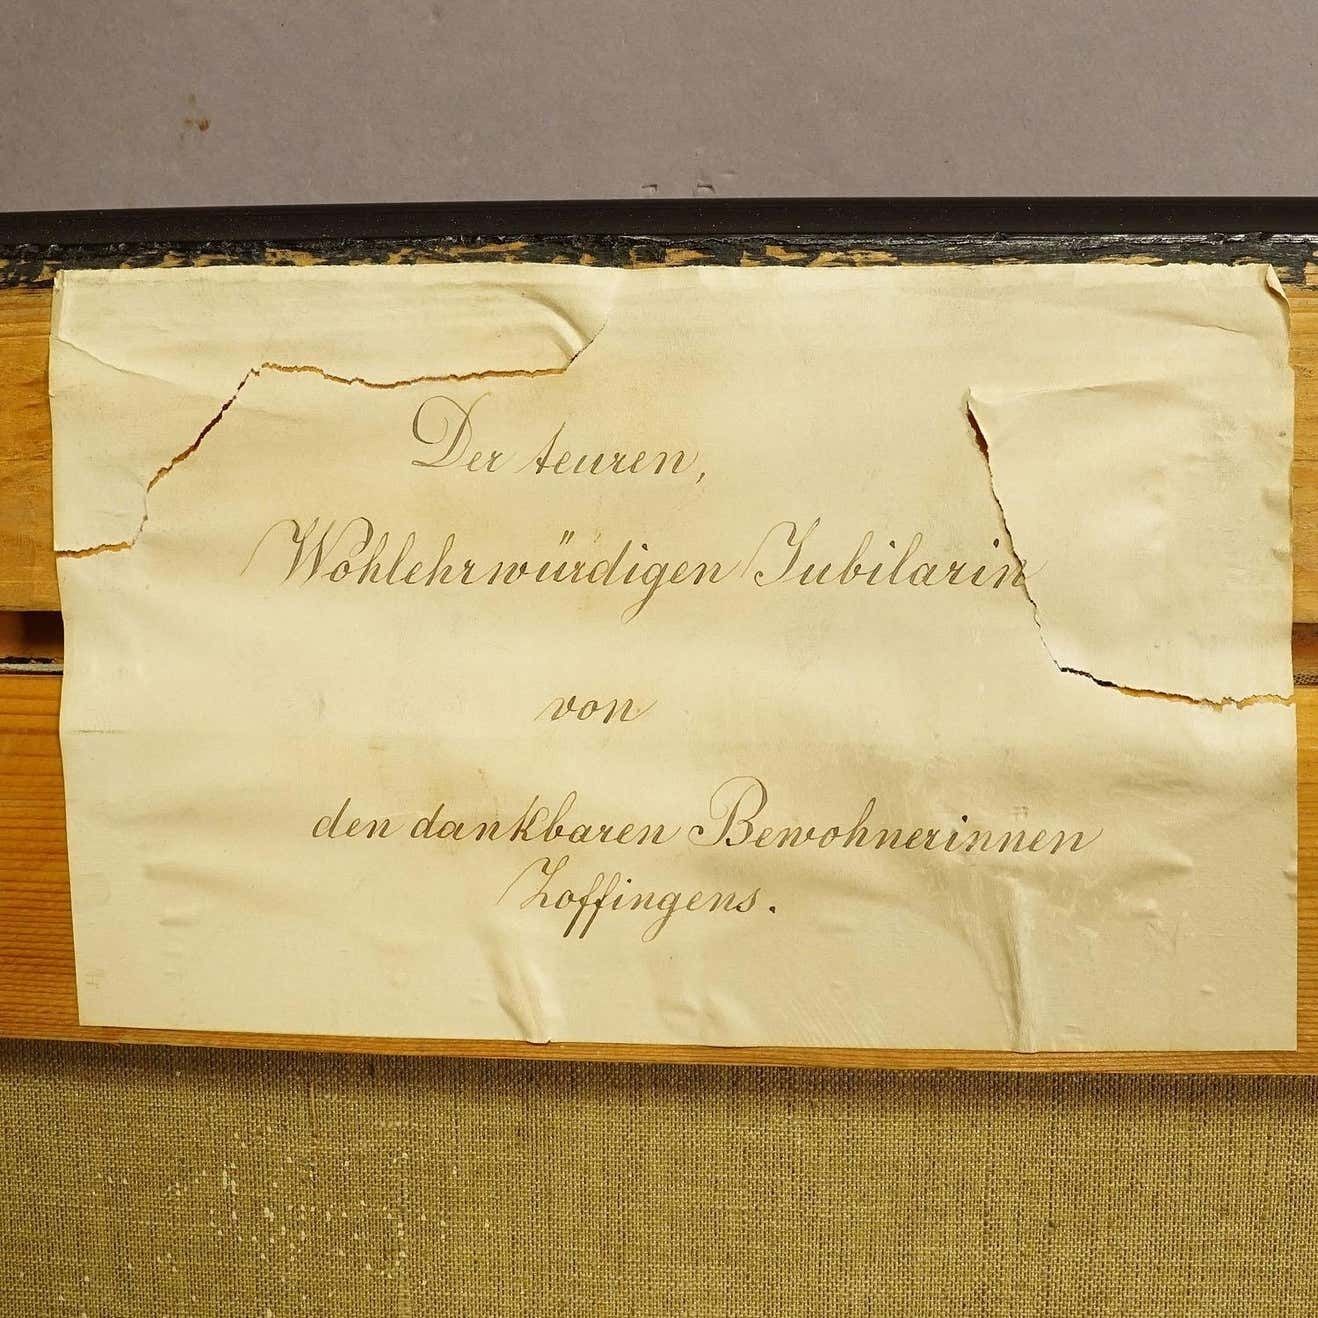 Der teuren,
Wohlehrwürdigen Jubilarin
von
den dankbaren Bewohnerinnen
Zoffingens.